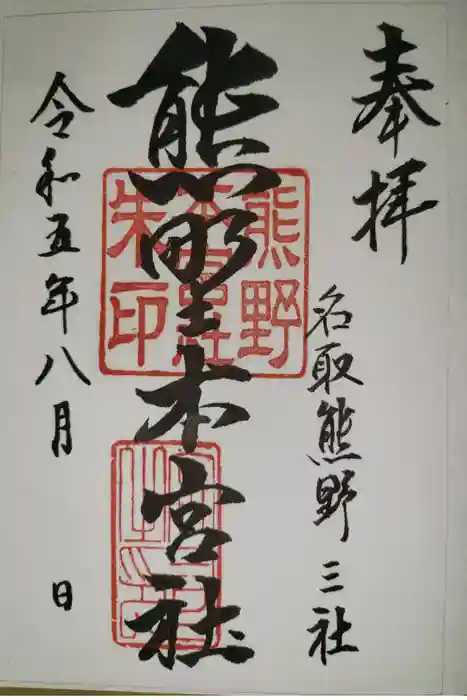 奉拝
名取熊野三社
熊野本宮社
令和五年八月 日
熊野
本宮
朱印